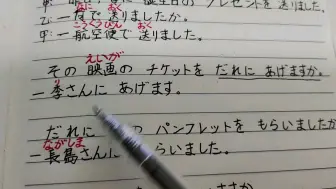 誕生日の プレゼントを 送りました
なに おく
一なで 送りましたか。
こうくうびん おく
一航空便で 送りました。
えいが
その 映画の チケットを だれに あげますか。
り
一李さんに あげます。
だれに の パンフレットを もらいましたか
ながしま
一長島さんに らいました。